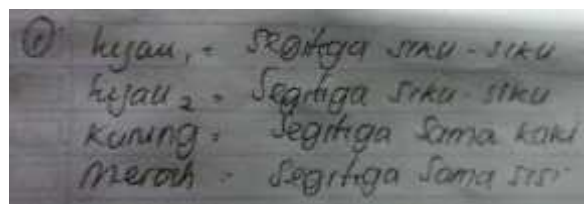 ① hijau₁ = Segitiga siku - siku
hijau₂ = Segitiga siku - siku
Kuning = Segitiga Sama kaki
Merah = Segitiga Sama sisi